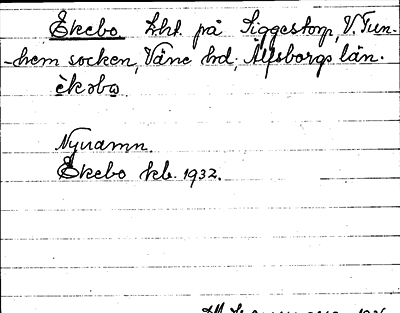 Ekebo lht. på Siggestorp, V. Tun-
-hem socken, Väne hd, Älfsborgs län.
èkobo
Nynamn.
Ekebo kb. 1932.